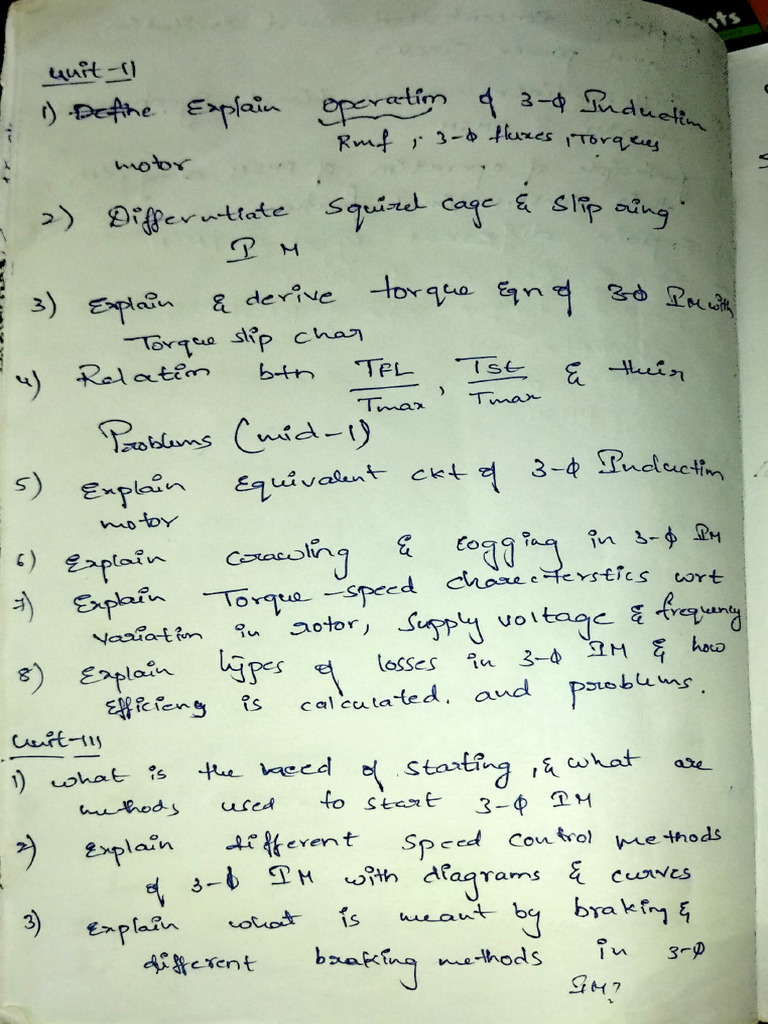 nts
Unit-II
1) Define Explain operation of 3-ϕ Induction
Rmf, 3-ϕ fluxes, Torques
motor
2) Differntiate Squirel cage & Slip ring
I M
3) Explain & derive torque Eqn of 3ϕ IM with
Torque slip char
4) Relation btn TFL/Tmax, Tst/Tmax & their
Problems (mid-1)
5) Explain Equivalent ckt of 3-ϕ Induction
motor
6) Explain crawling & cogging in 3-ϕ IM
7) Explain Torque-speed charecterstics wrt
variation in rotor, supply voltage & frequency
8) Explain types of losses in 3-ϕ IM & how
Efficieny is calculated. and problems.
Unit-III
1) what is the need of starting, & what are
methods used to start 3-ϕ IM
2) Explain different speed control methods
of 3-ϕ IM with diagrams & curves
3) Explain what is meant by braking &
different braking methods in 3-ϕ
IM?